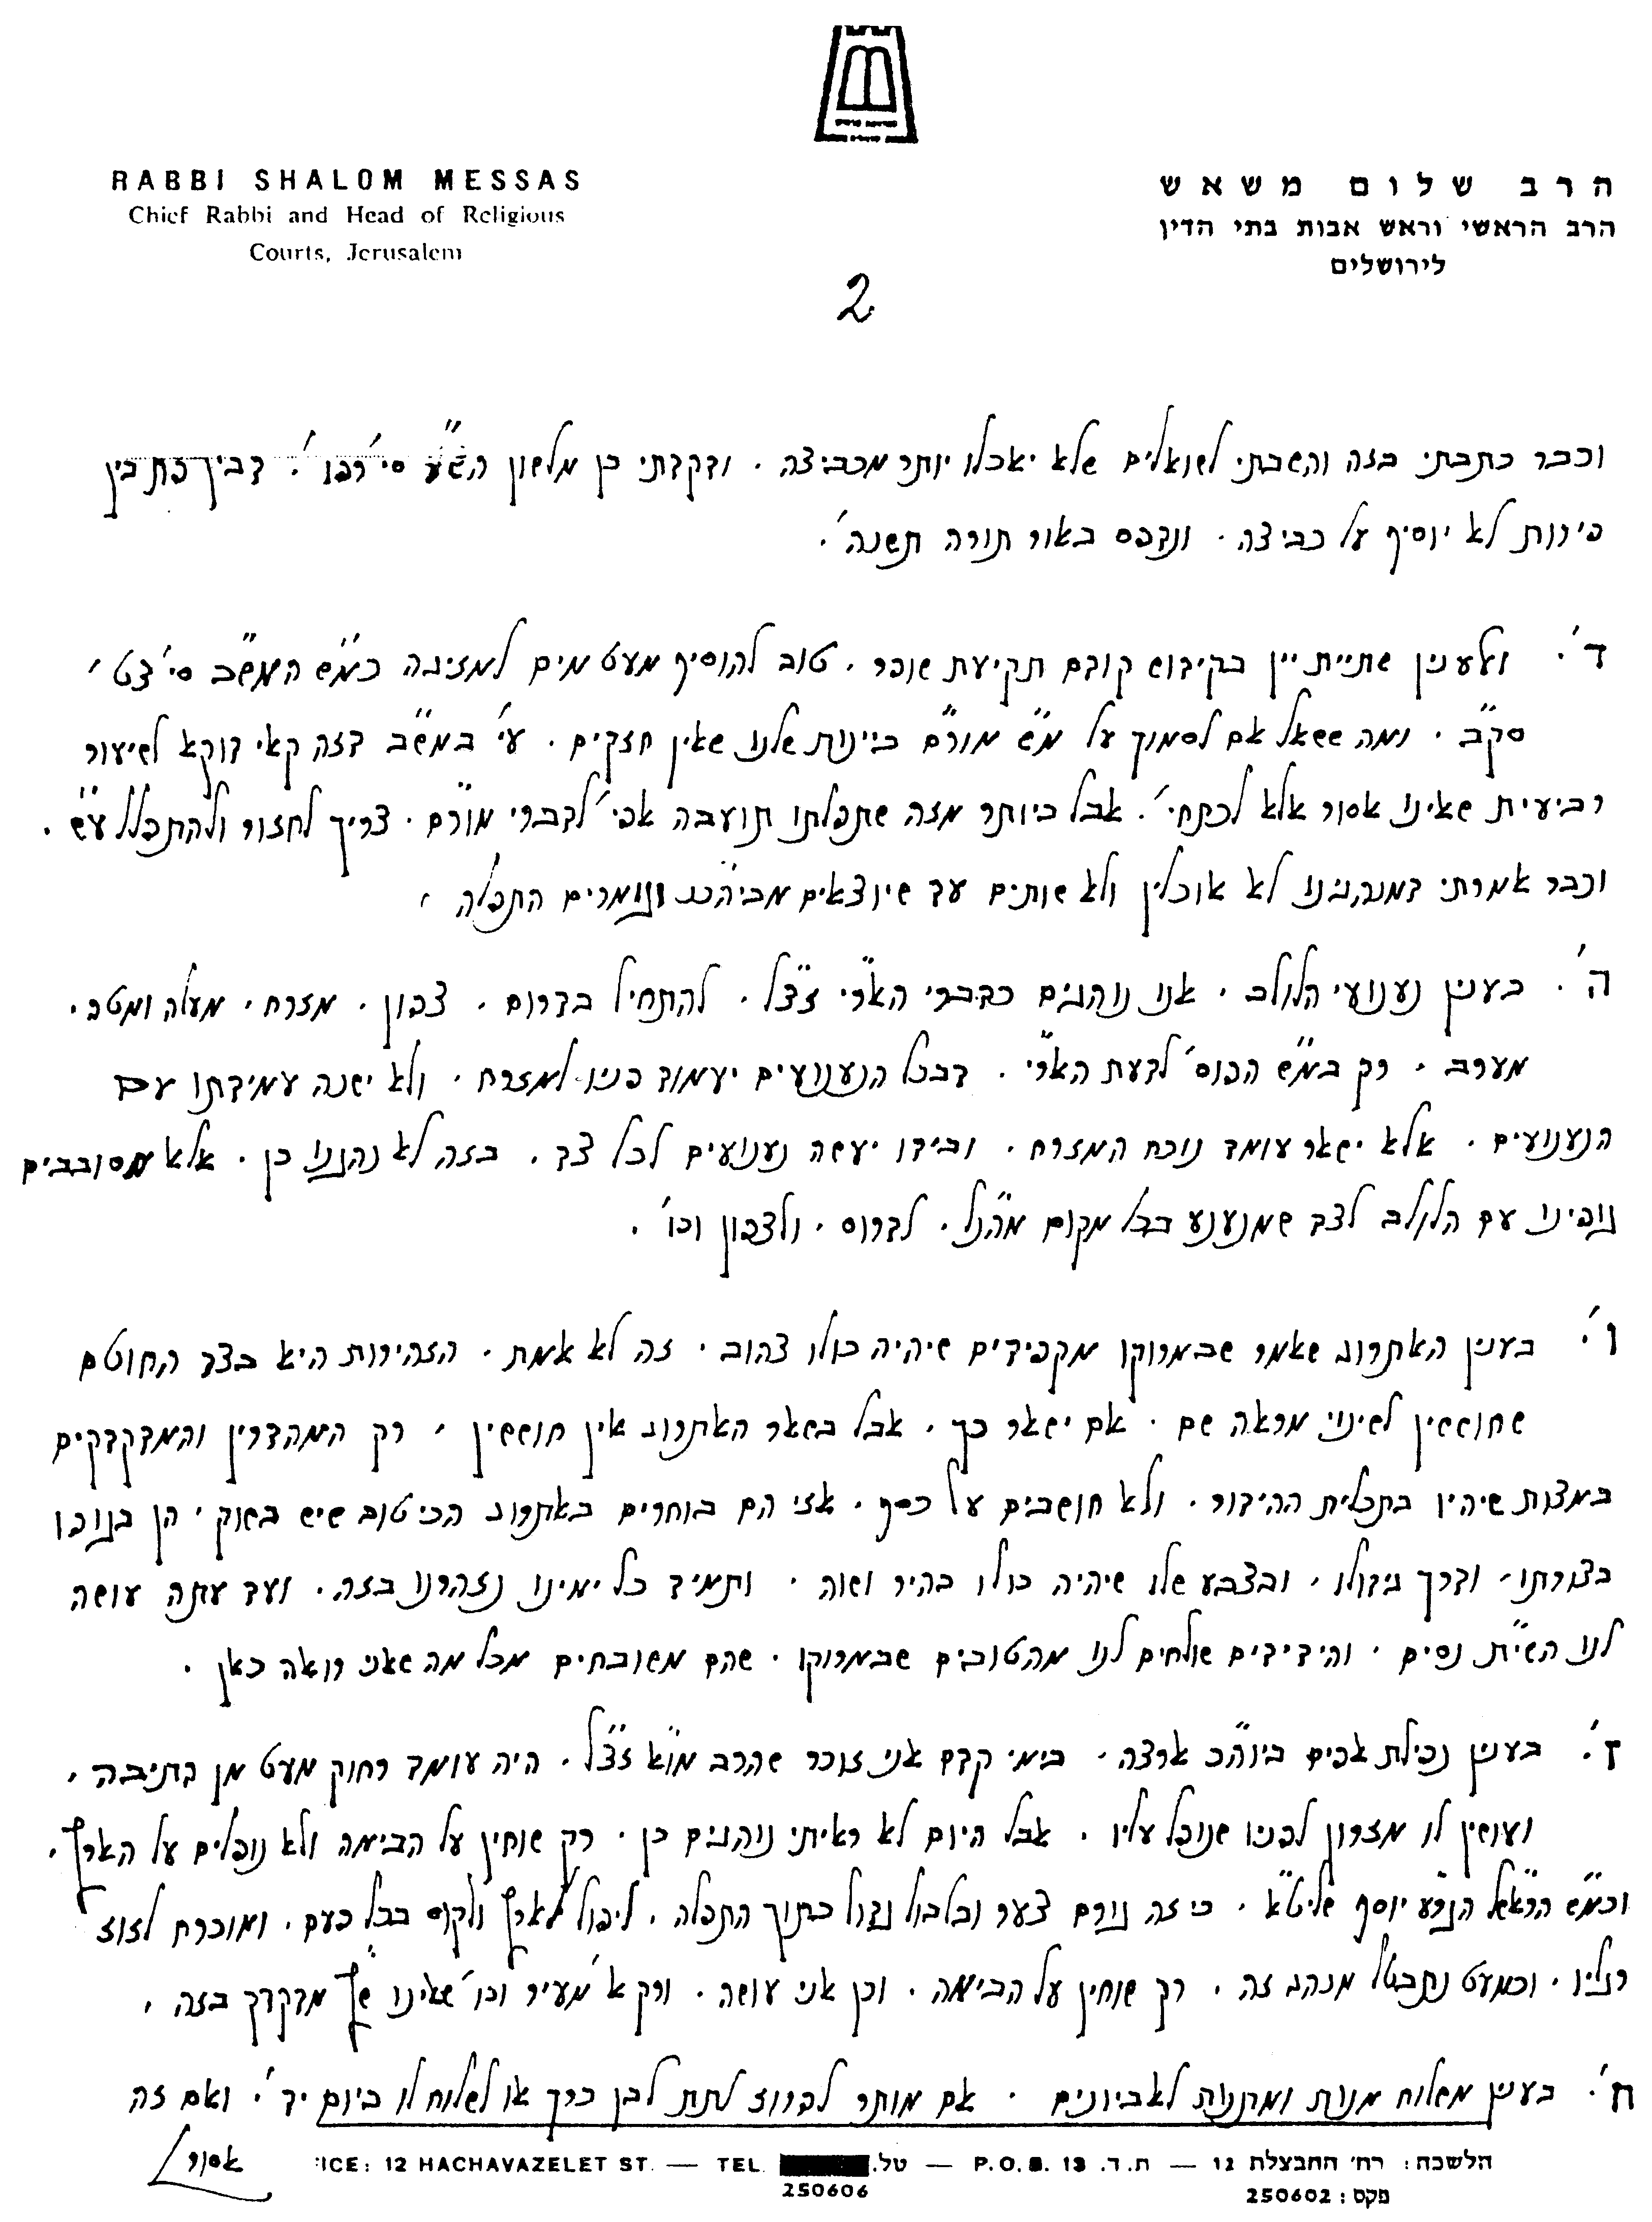 RABBI SHALOM MESSAS
Chief Rabbi and Head of Religious
Courts, Jerusalem
הרב שלום משאש
הרב הראשי וראש אבות בתי הדין
לירושלים
2
וכבר כתבתי בזה והשבתי לשואלים שלא יאכלו יותר מכביצה. ודקדתי כן מלשון הש"ע סי' רפו'. דבין פת בין
פירות לא יוסיף על כביצה. ונדפס באור תורה תשנה'.
ד'. ולענין שתיית יין בקידוש קודם תקיעת שופר. טוב להוסיף מעט מים למזיגה כמ"ש המש"ב סי' צט'
סק"ב. ומה ששאל אם לסמוך על מ"ש מור"ם ביינות שלנו שאין חזקים. עי' במש"ב דזה קאי דוקא לשיעור
רביעית שאינו אסור אלא לכתחי'. אבל ביותר מזה שתפלתו תועבה אפי' לדברי מור"ם. צריך לחזור ולהתפלל ע"ש.
וכבר אמרתי דמנהגינו לא אוכלין ולא שותים עד שיוצאים מביה"כנ וגומרים התפלה.
ה'. בענין נענועי הלולב. אנו נוהגים כדברי האר"י זצ"ל. להתחיל בדרום. צפון. מזרח. מעלה ומטה.
מערב. רק במ"ש הפוס' לדעת האר"י. דבכל הנענועים יעמוד פניו למזרח. ולא ישנה עמידתו עם
הנענועים. אלא ישאר עומד נוכח המזרח. ובידו יעשה נענועים לכל צד. בזה לא נהגנו כן. אלא מסובבים
גופינו עם הלולב לצד שמנענע בכל מקום מהנ"ל. לדרום. ולצפון וכו'.
ו'. בענין האתרוג שאמר שבמרוקו מקפידים שיהיה כולו צהוב. זה לא אמת. הזהירות היא בצד החוטם
שחוששין לשינוי מראה שם. אם ישאר כך. אבל בשאר האתרוג אין חוששין. רק המהדרין והמדקדקים
במצות שיהיו בתכלית ההידור. ולא חושבים על כסף. אזי הם בוחרים באתרוג הכי טוב שיש בשוק. הן בגופו
בצורתו. ודרך גידולו. ובצבע שלו שיהיה כולו בהיר ושוה. ותמיד כל ימינו נזהרנו בזה. ועד עתה עושה
לנו השי"ת נסים. והידידים שולחים לנו מהטובים שבמרוקו. שהם משובחים מכל מה שאני רואה כאן.
ז'. בענין נפילת אפים ביוה"כ ארצה. בימי קדם אני זוכר שהרב מו"א זצ"ל. היה עומד רחוק מעט מן התיבה.
ועושין לו מזרון לפניו שנופל עליו. אבל היום לא ראיתי נוהגים כן. רק שוחין על הבימה ולא נופלים על הארץ.
וכמ"ש הראש"ל הגר"ע יוסף שליט"א. כי זה גורם צער ובלבול גדול בתוך התפלה. ליפול לארץ ולקום בכל פעם. ומוכרח לזוז
רגליו. וכמעט נתבטל מנהג זה. רק שוחין על הבימה. וכן אני עושה. ורק א' מעיר וכו' שאינו ש"ץ מדקדק בזה.
ח'. בענין משלוח מנות ומתנות לאביונים. אם מותר לפרוז לתת לבן כרך או לשלוח לו ביום יד'. ואם זה
אסור
ICE: 12 HACHAVAZELET ST. — TEL. טל. — P.O.B. 13 ת.ד. — הלשכה: רח' החבצלת 12
250606
פקס: 250602